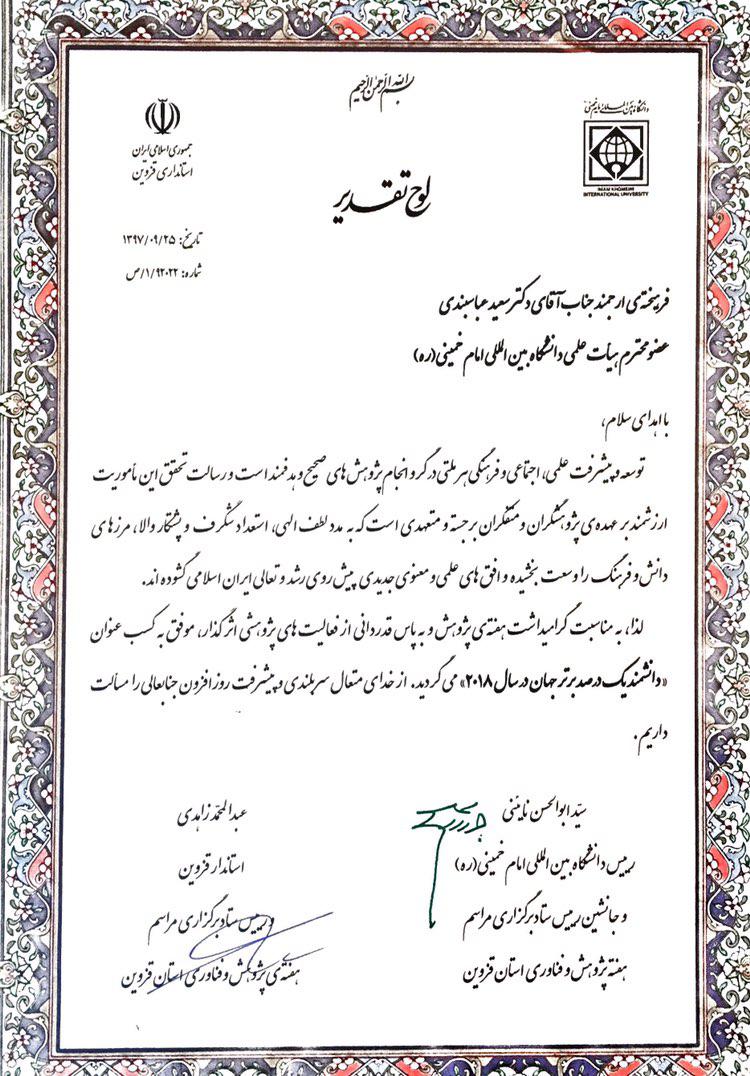 بسم الله الرحمن الرحیم
دانشگاه بین المللی امام خمینی
IMAM KHOMEINI
INTERNATIONAL UNIVERSITY
جمهوری اسلامی ایران
استانداری قزوین
لوح تقدیر
تاریخ: ۱۳۹۷/۰۹/۲۵
شماره: ۱/۹۲۰۲۲/ص
فریخته‌ی ارجمند جناب آقای دکتر سعید عباسبندی
عضو محترم هیأت علمی دانشگاه بین المللی امام خمینی(ره)
با اهدای سلام،
توسعه و پیشرفت علمی، اجتماعی و فرهنگی هر ملتی در گرو انجام پژوهش های صحیح و هدفمند است و رسالت تحقق این مأموریت
ارزشمند بر عهده‌ی پژوهشگران و متفکران برجسته و متعهدی است که به مدد لطف الهی، استعداد شگرف و پشتکار والا، مرزهای
دانش و فرهنگ را وسعت بخشیده و افق های علمی و معنوی جدیدی پیش روی رشد و تعالی ایران اسلامی گشوده اند.
لذا، به مناسبت گرامیداشت هفته‌ی پژوهش و به پاس قدردانی از فعالیت های پژوهشی اثرگذار، موفق به کسب عنوان
«دانشمند یک درصد برتر جهان در سال ۲۰۱۸» می گردید. از خدای متعال سربلندی و پیشرفت روز افزون جنابعالی را مسألت
داریم.
سیّد ابوالحسن نایینی
رییس دانشگاه بین المللی امام خمینی(ره)
و جانشین رییس ستاد برگزاری مراسم
هفته پژوهش و فناوری استان قزوین
عبدالمحمّد زاهدی
استاندار قزوین
و رییس ستاد برگزاری مراسم
هفته‌ی پژوهش و فناوری استان قزوین
۱